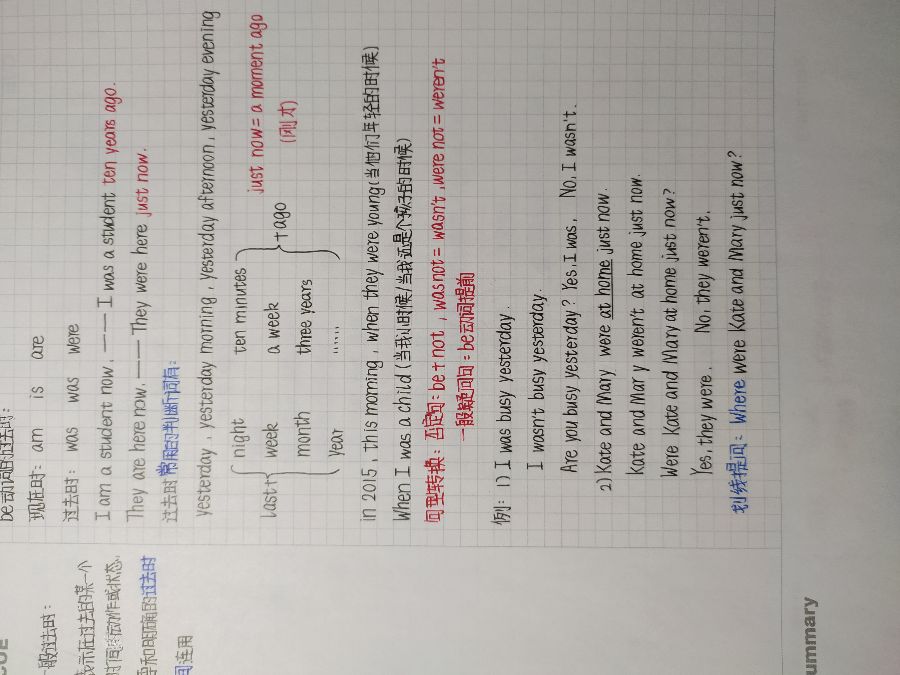 be动词的过去时:
现在时: am is are
过去时: was was were
I am a student now. —— I was a student ten years ago.
They are here now. —— They were here just now.
过去时常用的判断词有:
yesterday, yesterday morning, yesterday afternoon, yesterday evening
last+{ night week month year
ten minutes a week three years ...... }+ago
just now = a moment ago
(刚才)
in 2015, this morning, when they were young(当他们年轻的时候)
When I was a child (当我小时候/当我还是个孩子的时候)
句型转换: 否定句: be+not, was not = wasn't, were not = weren't
一般疑问句: be动词提前
例: 1) I was busy yesterday.
I wasn't busy yesterday.
Are you busy yesterday? Yes, I was. No, I wasn't.
2) Kate and Mary were at home just now.
Kate and Mary weren't at home just now.
Were Kate and Mary at home just now?
Yes, they were. No, they weren't.
划线提问: Where were Kate and Mary just now?
CUE
一般过去时:
表示在过去的某一个
时间 动作或状态.
常和明确的过去时
间连用
ummary